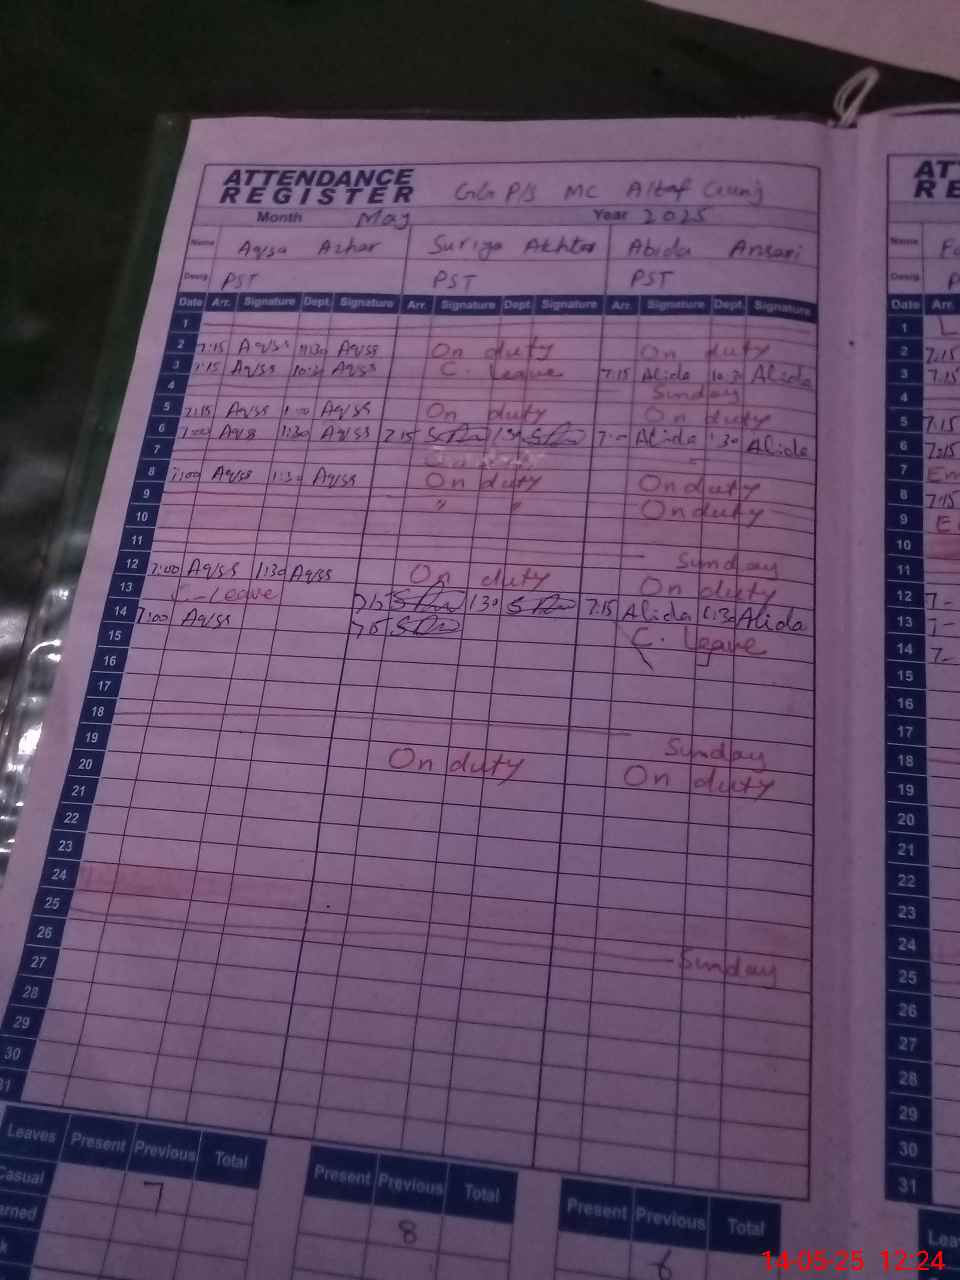 ATTENDANCE
REGISTER
P/S MC Altaf
Month May Year 2025
Name Aqsa Azhar Suriya Akhtar Abida Ansari
Desig PST PST PST
Date Arr. Signature Dept. Signature Arr. Signature Dept. Signature Arr. Signature Dept. Signature
1
2 7:15 Aqsa 11:30 Aqsa On duty On duty
3 7:15 Aqsa Aqsa C. Leave 7:15 Abida Abida
4 Sunday
5 7:15 Aqsa Aqsa On duty On duty
6 7:00 Aqsa 1:30 Aqsa 7:15 1:30 Abida 1:30 Abida
7
8 7:00 Aqsa 1:30 Aqsa On duty On duty
9 " " On duty
10
11 Sunday
12 7:00 Aqsa 1:30 Aqsa On duty On duty
13 Leave 7:15 1:30 7:15 Abida 1:30 Abida
14 7:00 Aqsa 7:15 C. Leave
15
16
17
18 Sunday
19 On duty On duty
20
21
22
23
24
25 Sunday
26
27
28
29
30
31
Leaves Present Previous Total Present Previous Total Present Previous Total
Casual 7 8 6
AT
RE
Name
Desig
Date Arr.
1
2 7:15
3 7:15
4
5 7:15
6 7:15
7
8 7:15
9
10
11
12
13
14
15
16
17
18
19
20
21
22
23
24
25
26
27
28
29
30
31
14-05-25 12:24